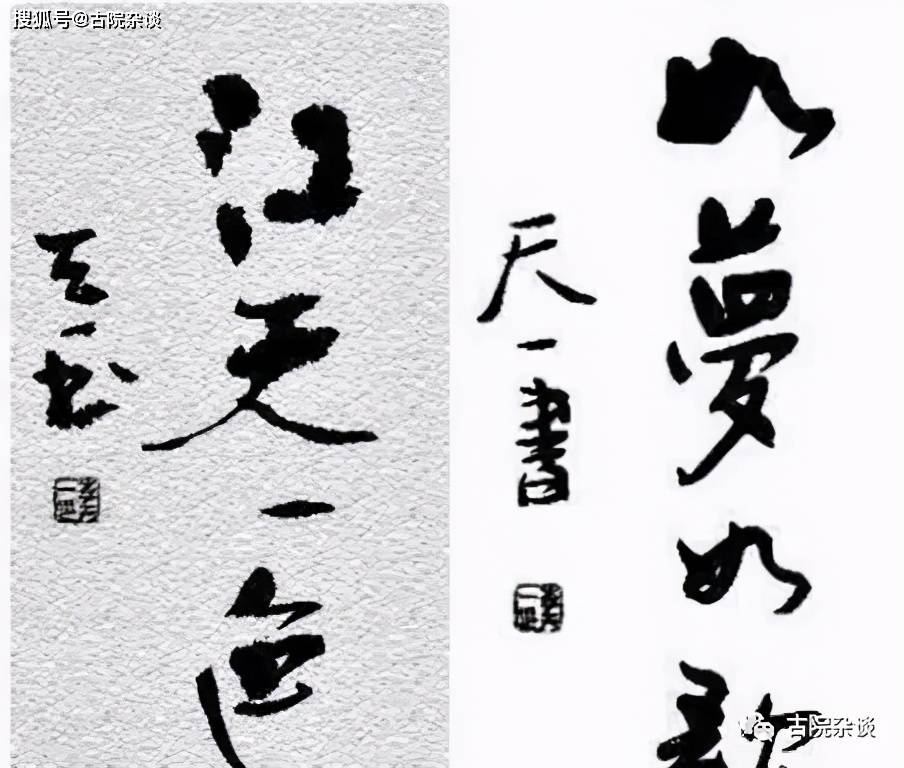 搜狐号@古院杂谈
江天一色
天一书
如梦如歌
天一書
古院杂谈